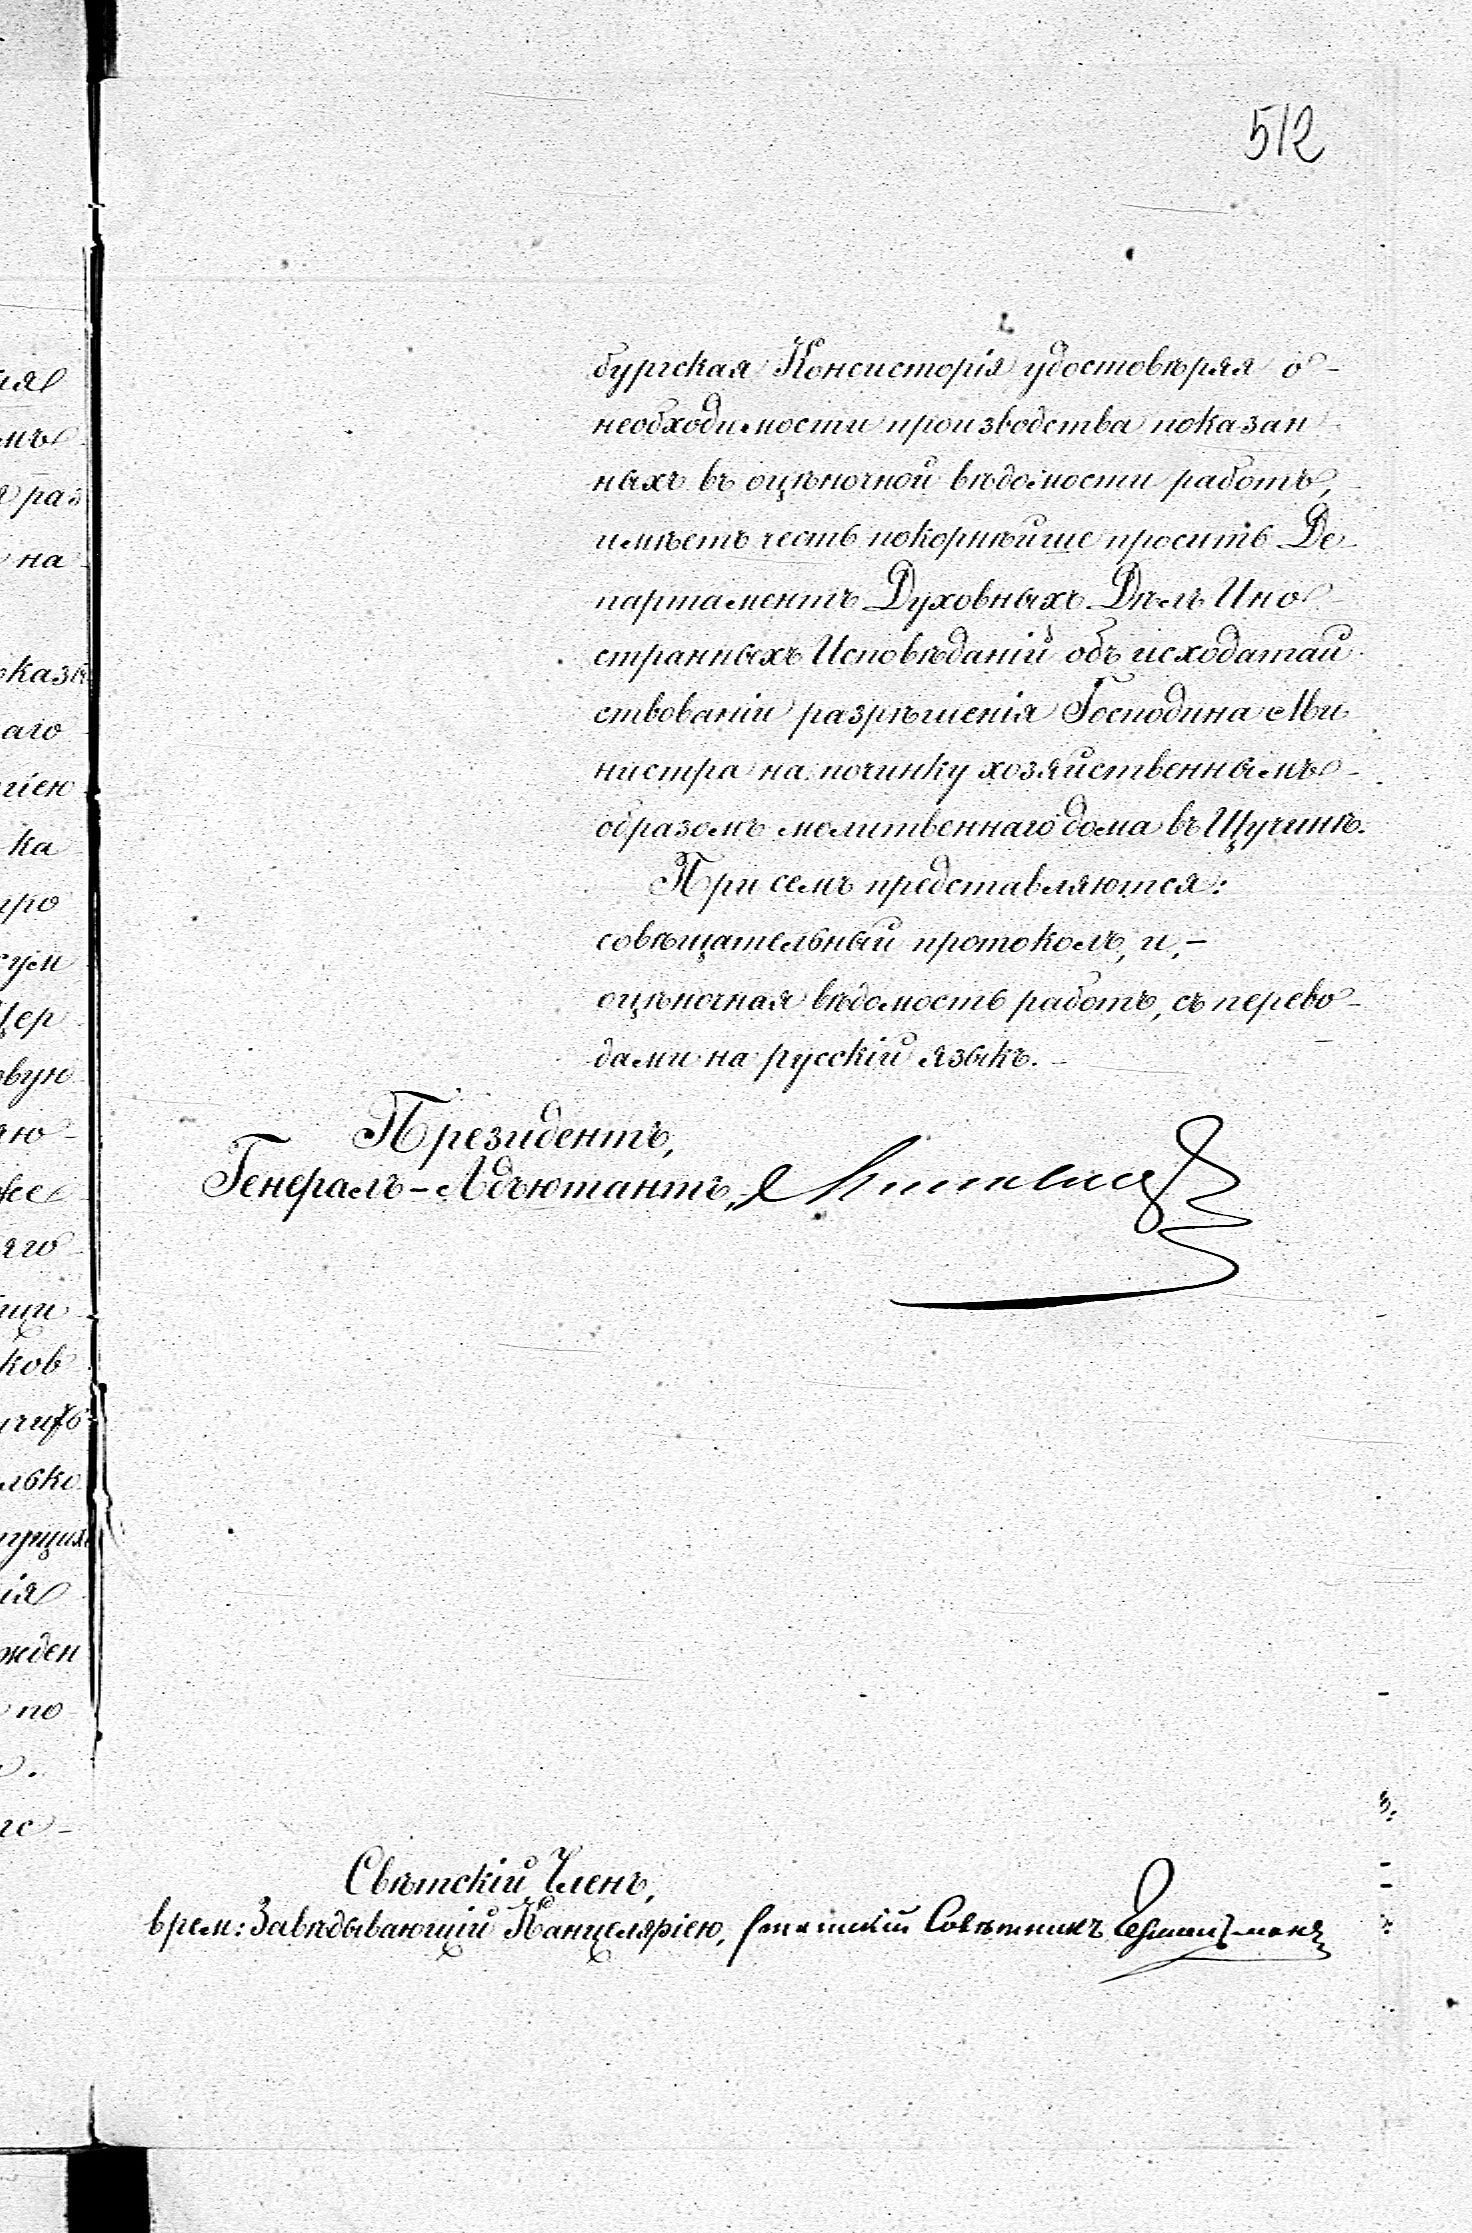 512
бургская Консисторія удостовѣряя о-
необходимости производства показан
ныхъ въ оцѣночной вѣдомости работъ,
имѣетъ честь покорнѣйше проситъ Де
партаментъ Духовныхъ Дѣлъ Ино
странныхъ Исповѣданій объ исходатай
ствованіи разрѣшенія Господина Ми
нистра на починку хозяйственнымъ
образомъ молитвеннаго дома въ Щучинѣ.
При семъ представляются:
совѣщательный протоколъ, и,-
оцѣночная вѣдомость работъ, съ перево-
дами на русскій языкъ.
Президентъ,
Генералъ-Адъютантъ,
Свѣтскій Членъ,
врем: Завѣдывающій Канцеляріею, Статскій Совѣтникъ
ія
мъ
я раз
на
оказы
аго
гіею
ка
про
сум
Цер
овую
яю-
же
яго
щи
ков
лько
ія
жден
по
гс-